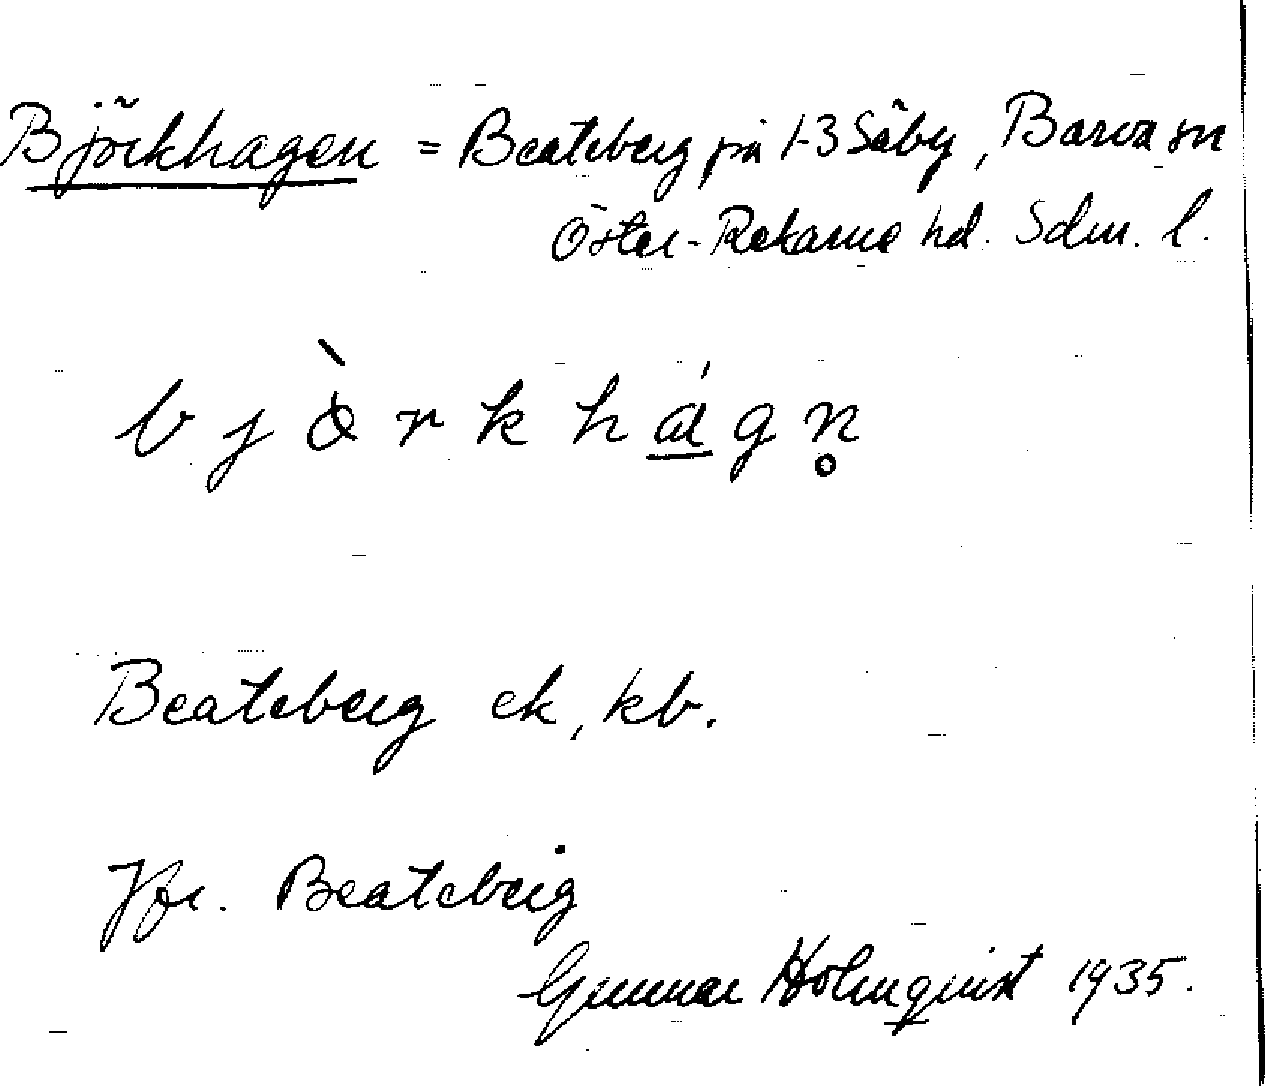 Björkhagen = Beateberg på 1-3 Säby, Barva sn
Öster-Rekarne hd. Sdm. l.
b j ò r k h á g n̥
Beateberg ek, kb.
Jfr. Beateberg
Gunnar Holmquist 1935.